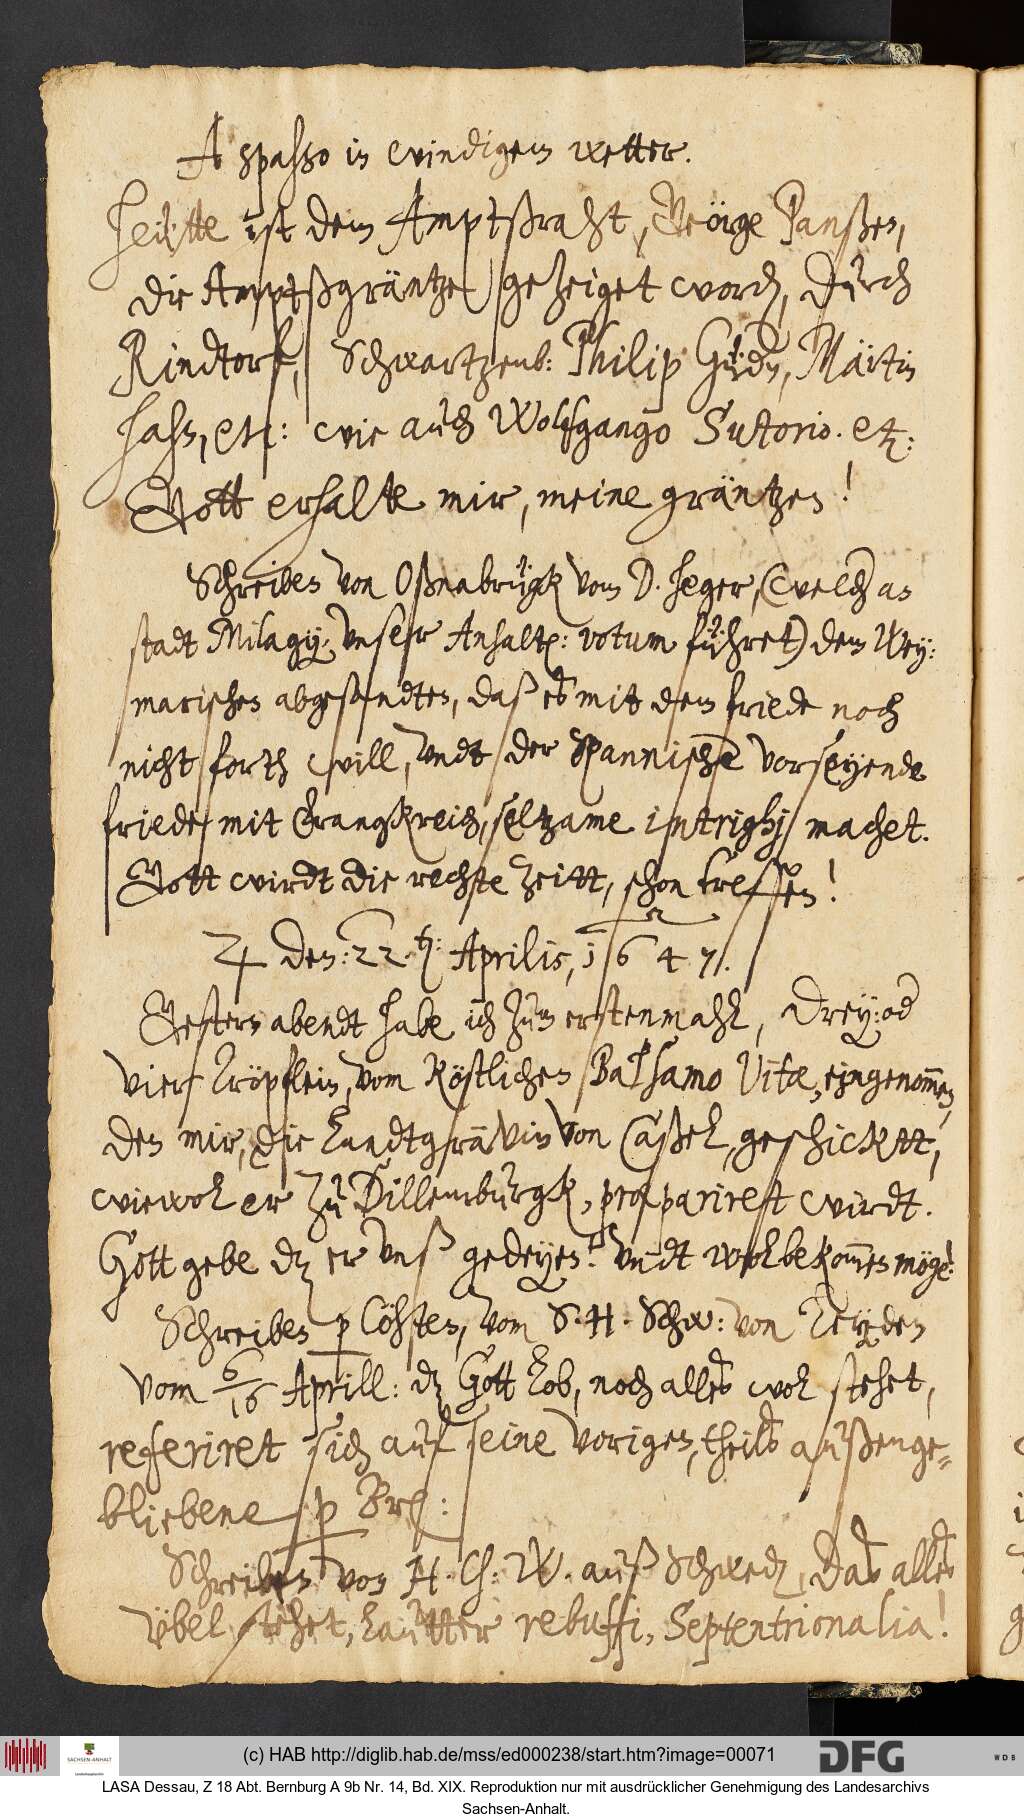 A spasso in windigem wetter.
Heütte ist dem Amptßraht, Geörge Panßen,
die Amptßgräntze gezeiget word, durch
Rindtorf, Schwartzenb: Philip Güdn, Märtin
Haß, etc: wie auch Wolfgango Sutorio. etc:
Gott erhalte mir, meine gräntzen!
Schreiben von Oßnabrügk vom D. Heger, (welcher an
stadt Milagij, unser Anhaltt: votum führet) dem Wey:
marischen abgesandten, daß es mit dem friede noch
nicht forth will, undt der Spannische vorseyende
friede mit Frangkreich, seltzame intrighj machet.
Gott wirdt die rechte zeitt, schon treffen!
♃ den: 22. ten: Aprilis, 1647.
Gestern abendt habe ich zum erstenmahl, drey: oder
vier Tröpflein, vom Köstlichen Balsamo Vitæ, eingenommen,
den mir, die Landtgrävin von Caßel, geschicktt,
wiewol er zu Dillemburgk, præpariret wirdt.
Gott gebe dz er unß gedeyen? undt wolbekommen möge!
Schreiben p Cöhten, vom S. H. Schw: von Leyden
vom 6/16 Aprill: dz Gott lob, noch alles wol stehet,
referiret sich auf seine vorigen, theils außenge-
bliebene p Br:
Schreiben von H. Ch: W. auß Schweden, das alles
übel stehet, lautter rebuffi, Septentrionalia!
(c) HAB http://diglib.hab.de/mss/ed000238/start.htm?image=00071
SACHSEN-ANHALT
DFG
WDB
LASA Dessau, Z 18 Abt. Bernburg A 9b Nr. 14, Bd. XIX. Reproduktion nur mit ausdrücklicher Genehmigung des Landesarchivs
Sachsen-Anhalt.